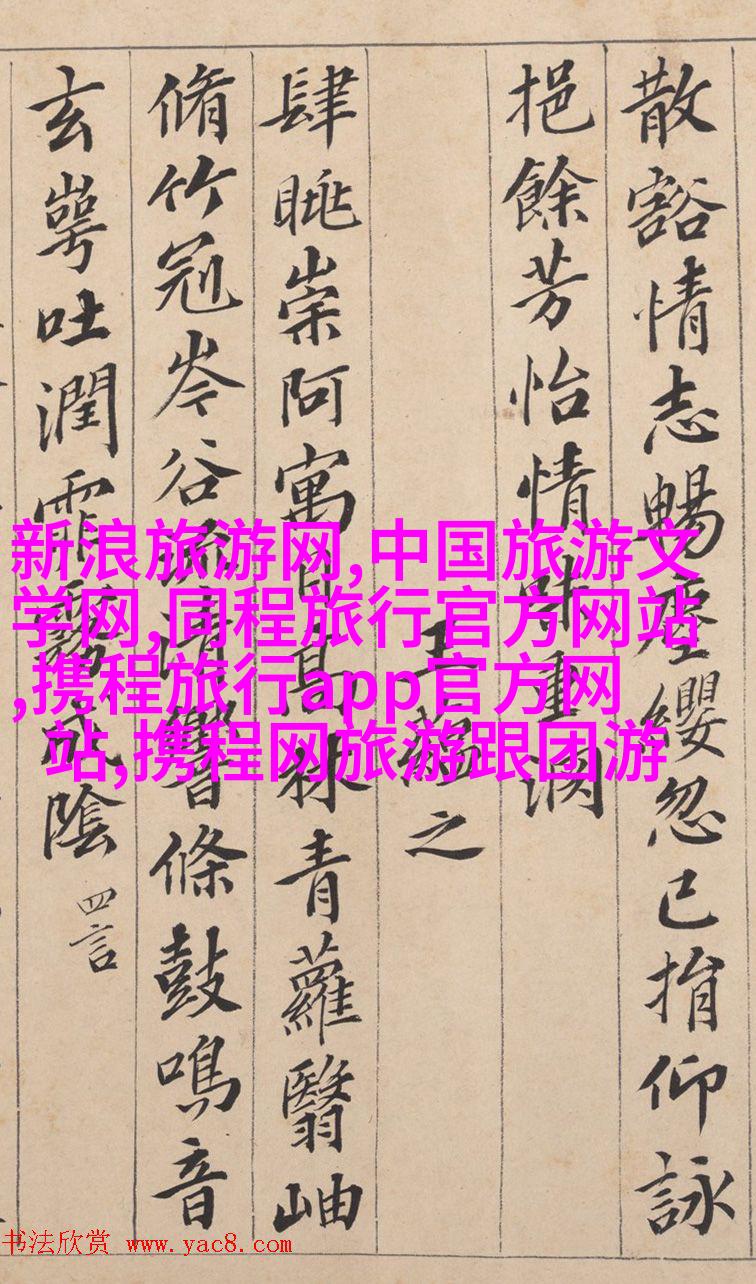 散豁情志暢塵纓忽已捐仰詠
挹餘芳怡情味重淵
王蘊之
肆眺崇阿寓目高林青蘿翳岫
脩竹冠岑谷流清響條鼓鳴音
玄崿吐潤霏霧成陰 四言
新浪旅游网,中国旅游文
学网,同程旅行官方网站
,携程旅行app官方网
站,携程网旅游跟团游
书法欣赏 www.yac8.com